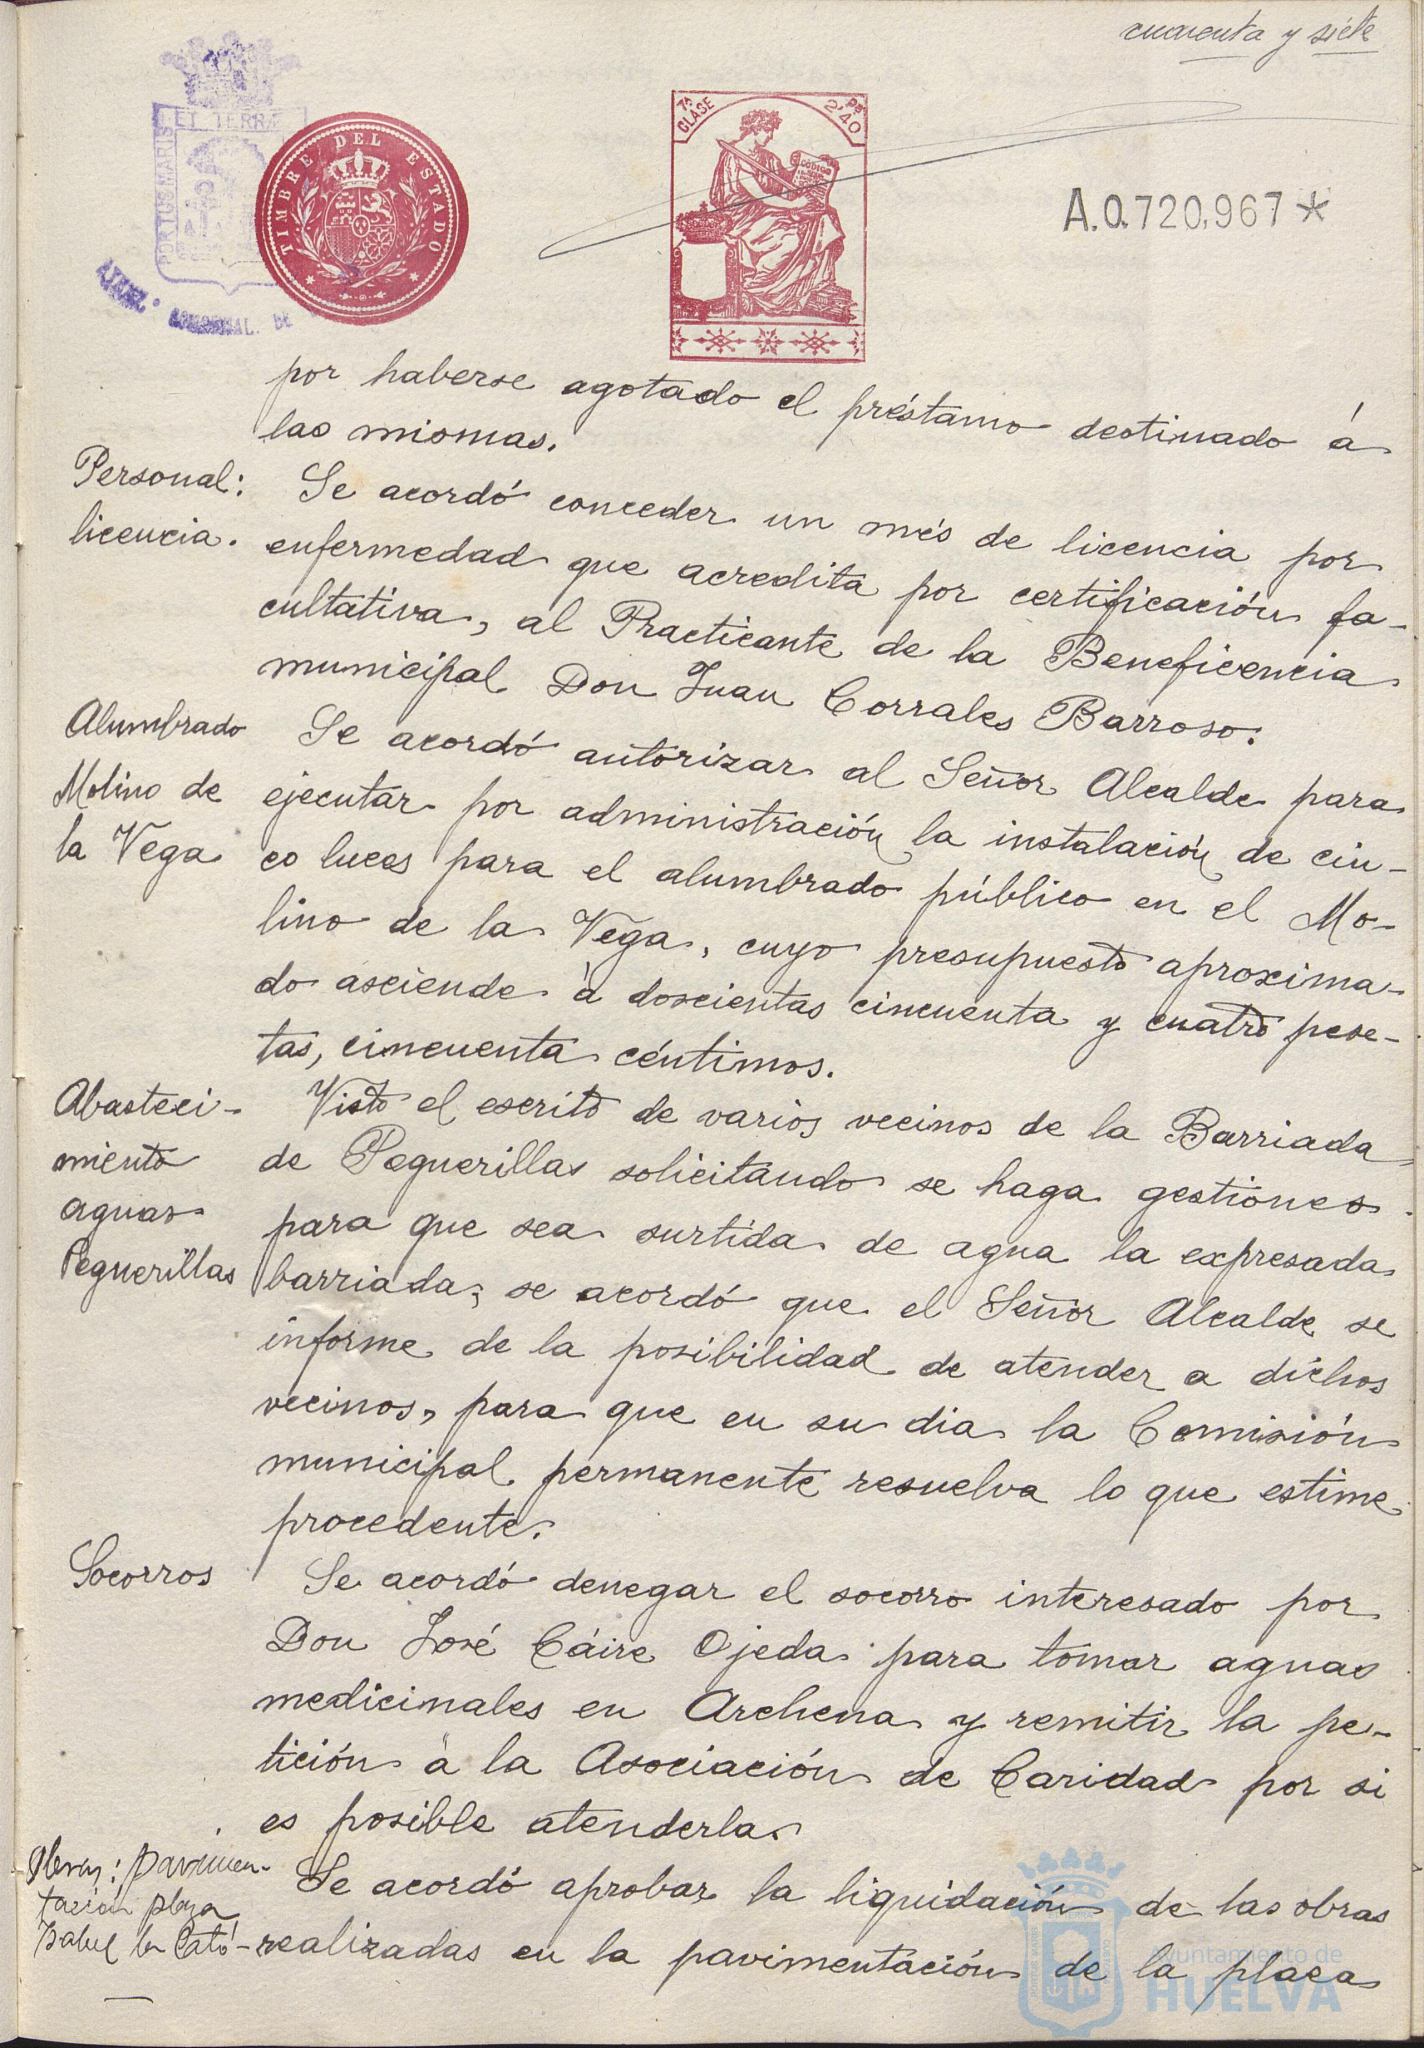 cuarenta y siete
7ª CLASE
2'40 Ps
CÓDIGO
ET TERRÆ
PORTUS MARIS
TIMBRE DEL ESTADO
A.0.720,967*
por haberse agotado el préstamo destinado á
las mismas.
Personal:
licencia.
Se acordó conceder un més de licencia por
enfermedad que acredita por certificación fa-
cultativa, al Practicante de la Beneficencia
municipal Don Juan Corrales Barroso.
Alumbrado
Molino de
la Vega
Se acordó autorizar al Señor Alcalde para
ejecutar por administración la instalación de cin-
co luces para el alumbrado público en el Mo-
lino de la Vega, cuyo presupuesto aproxima-
do asciende á doscientas cincuenta y cuatro pese-
tas, cincuenta céntimos.
Abasteci-
miento
aguas
Peguerillas
Visto el escrito de varios vecinos de la Barriada
de Peguerillas solicitando se haga gestiones
para que sea surtida de agua la expresada
barriada; se acordó que el Señor Alcalde se
informe de la posibilidad de atender a dichos
vecinos, para que en su dia la Comisión
municipal permanente resuelva lo que estime
procedente.
Socorros
Se acordó denegar el socorro interesado por
Don José Cáire Ojeda para tomar aguas
medicinales en Archena y remitir la pe-
tición á la Asociación de Caridad por si
es posible atenderla.
Obras: pavimen-
tación plaza
Isabel la Cató-
Se acordó aprobar la liquidación de las obras
realizadas en la pavimentación de la plaza
Ayuntamiento de
HUELVA